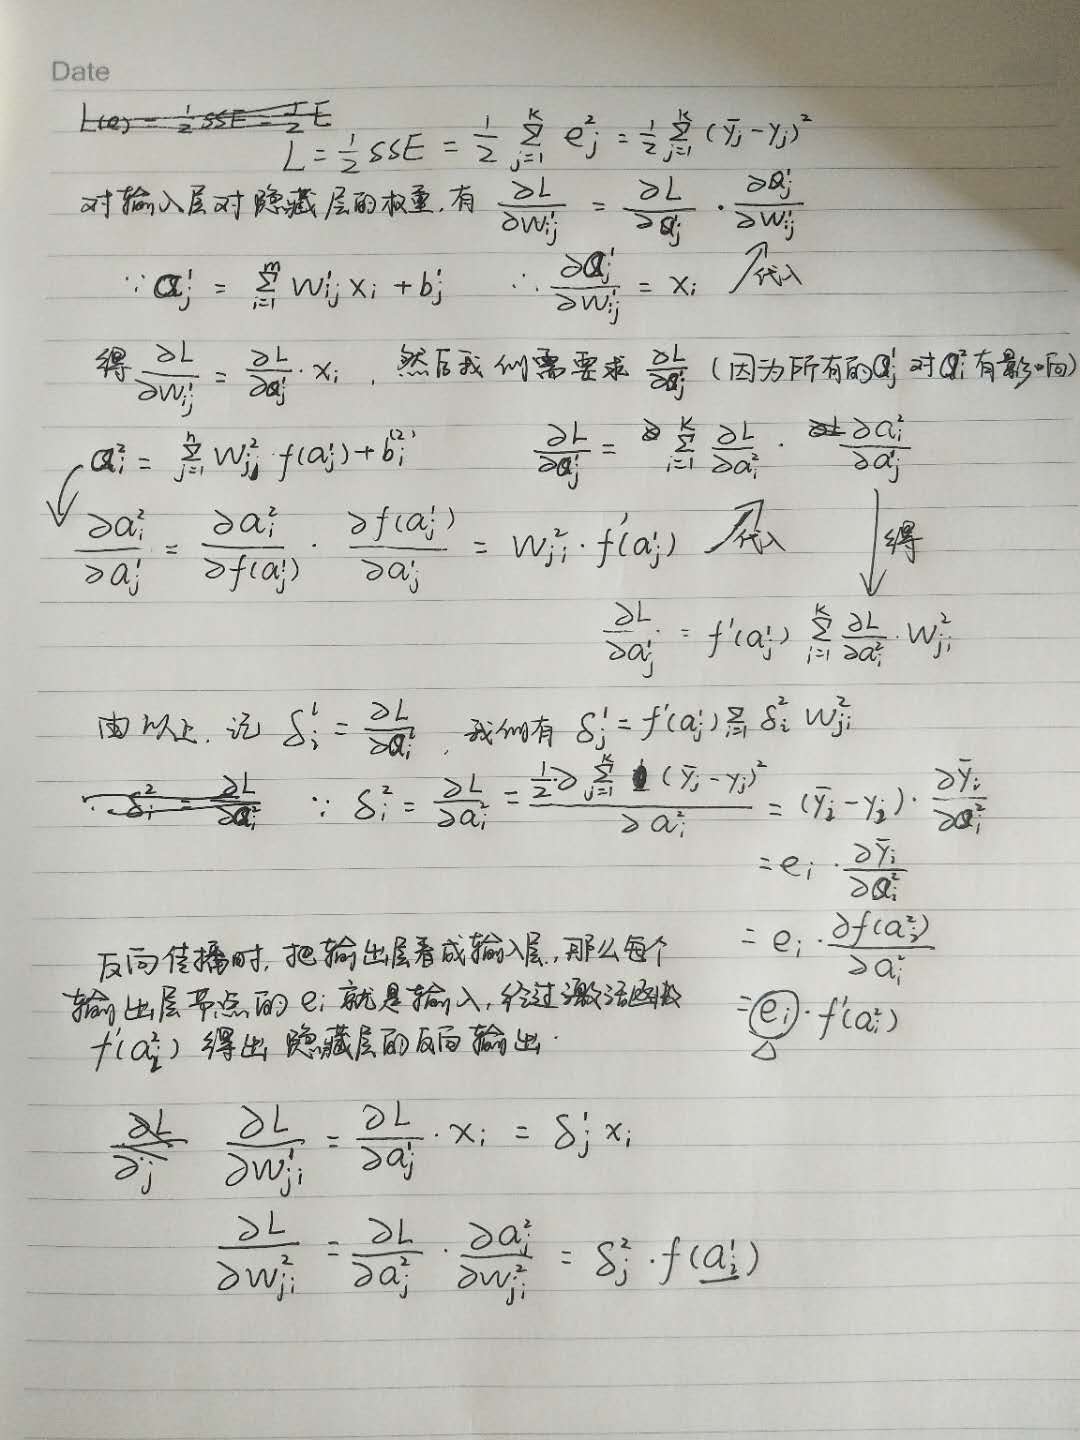 Date
L(e) = 1/2 SSE = 1/2 E
L = 1/2 SSE = 1/2 ∑_{j=1}^{K} e_j^2 = 1/2 ∑_{j=1}^{K} (ȳ_j - y_j)^2
对输入层对隐藏层的权重,有 ∂L/∂w_{ij}^1 = ∂L/∂a_j^1 · ∂a_j^1/∂w_{ij}^1
∵ a_j^1 = ∑_{i=1}^{m} w_{ij}^1 x_i + b_j^1 ∴ ∂a_j^1/∂w_{ij}^1 = x_i 代入
得 ∂L/∂w_{ij}^1 = ∂L/∂a_j^1 · x_i , 然后我们需要求 ∂L/∂a_j^1 (因为所有的a_j^1 对a_i^2有影响)
a_i^2 = ∑_{j=1}^{n} w_{ji}^2 · f(a_j^1) + b_i^{(2)} ∂L/∂a_j^1 = ∑_{i=1}^{K} ∂L/∂a_i^2 · ∂a_i^2/∂a_j^1
∂a_i^2/∂a_j^1 = ∂a_i^2/∂f(a_j^1) · ∂f(a_j^1)/∂a_j^1 = w_{ji}^2 · f'(a_j^1) 代入 得
∂L/∂a_j^1 = f'(a_j^1) ∑_{i=1}^{K} ∂L/∂a_i^2 · w_{ji}^2
由以上, 记 δ_i^1 = ∂L/∂a_i^2 , 我们有 δ_j^1 = f'(a_j^1) ∑_{i=1} δ_i^2 w_{ji}^2
∵ δ_i^2 = ∂L/∂a_i^2 ∵ δ_i^2 = ∂L/∂a_i^2 = 1/2 · ∂ ∑_{j=1}^{K} (ȳ_j - y_j)^2 / ∂a_i^2 = (ȳ_i - y_i) · ∂ȳ_i/∂a_i^2
= e_i · ∂ȳ_i/∂a_i^2
= e_i · ∂f(a_i^2)/∂a_i^2
= e_i · f'(a_i^2)
反向传播时, 把输出层看成输入层, 那么每个
输出层节点的 e_i 就是输入, 经过激活函数
f'(a_i^2) 得出 隐藏层的反向输出.
∂L/∂j ∂L/∂w_{ji}^1 = ∂L/∂a_j^1 · x_i = δ_j^1 x_i
∂L/∂w_{ji}^2 = ∂L/∂a_j^2 · ∂a_j^2/∂w_{ji}^2 = δ_j^2 · f(a_i^1)